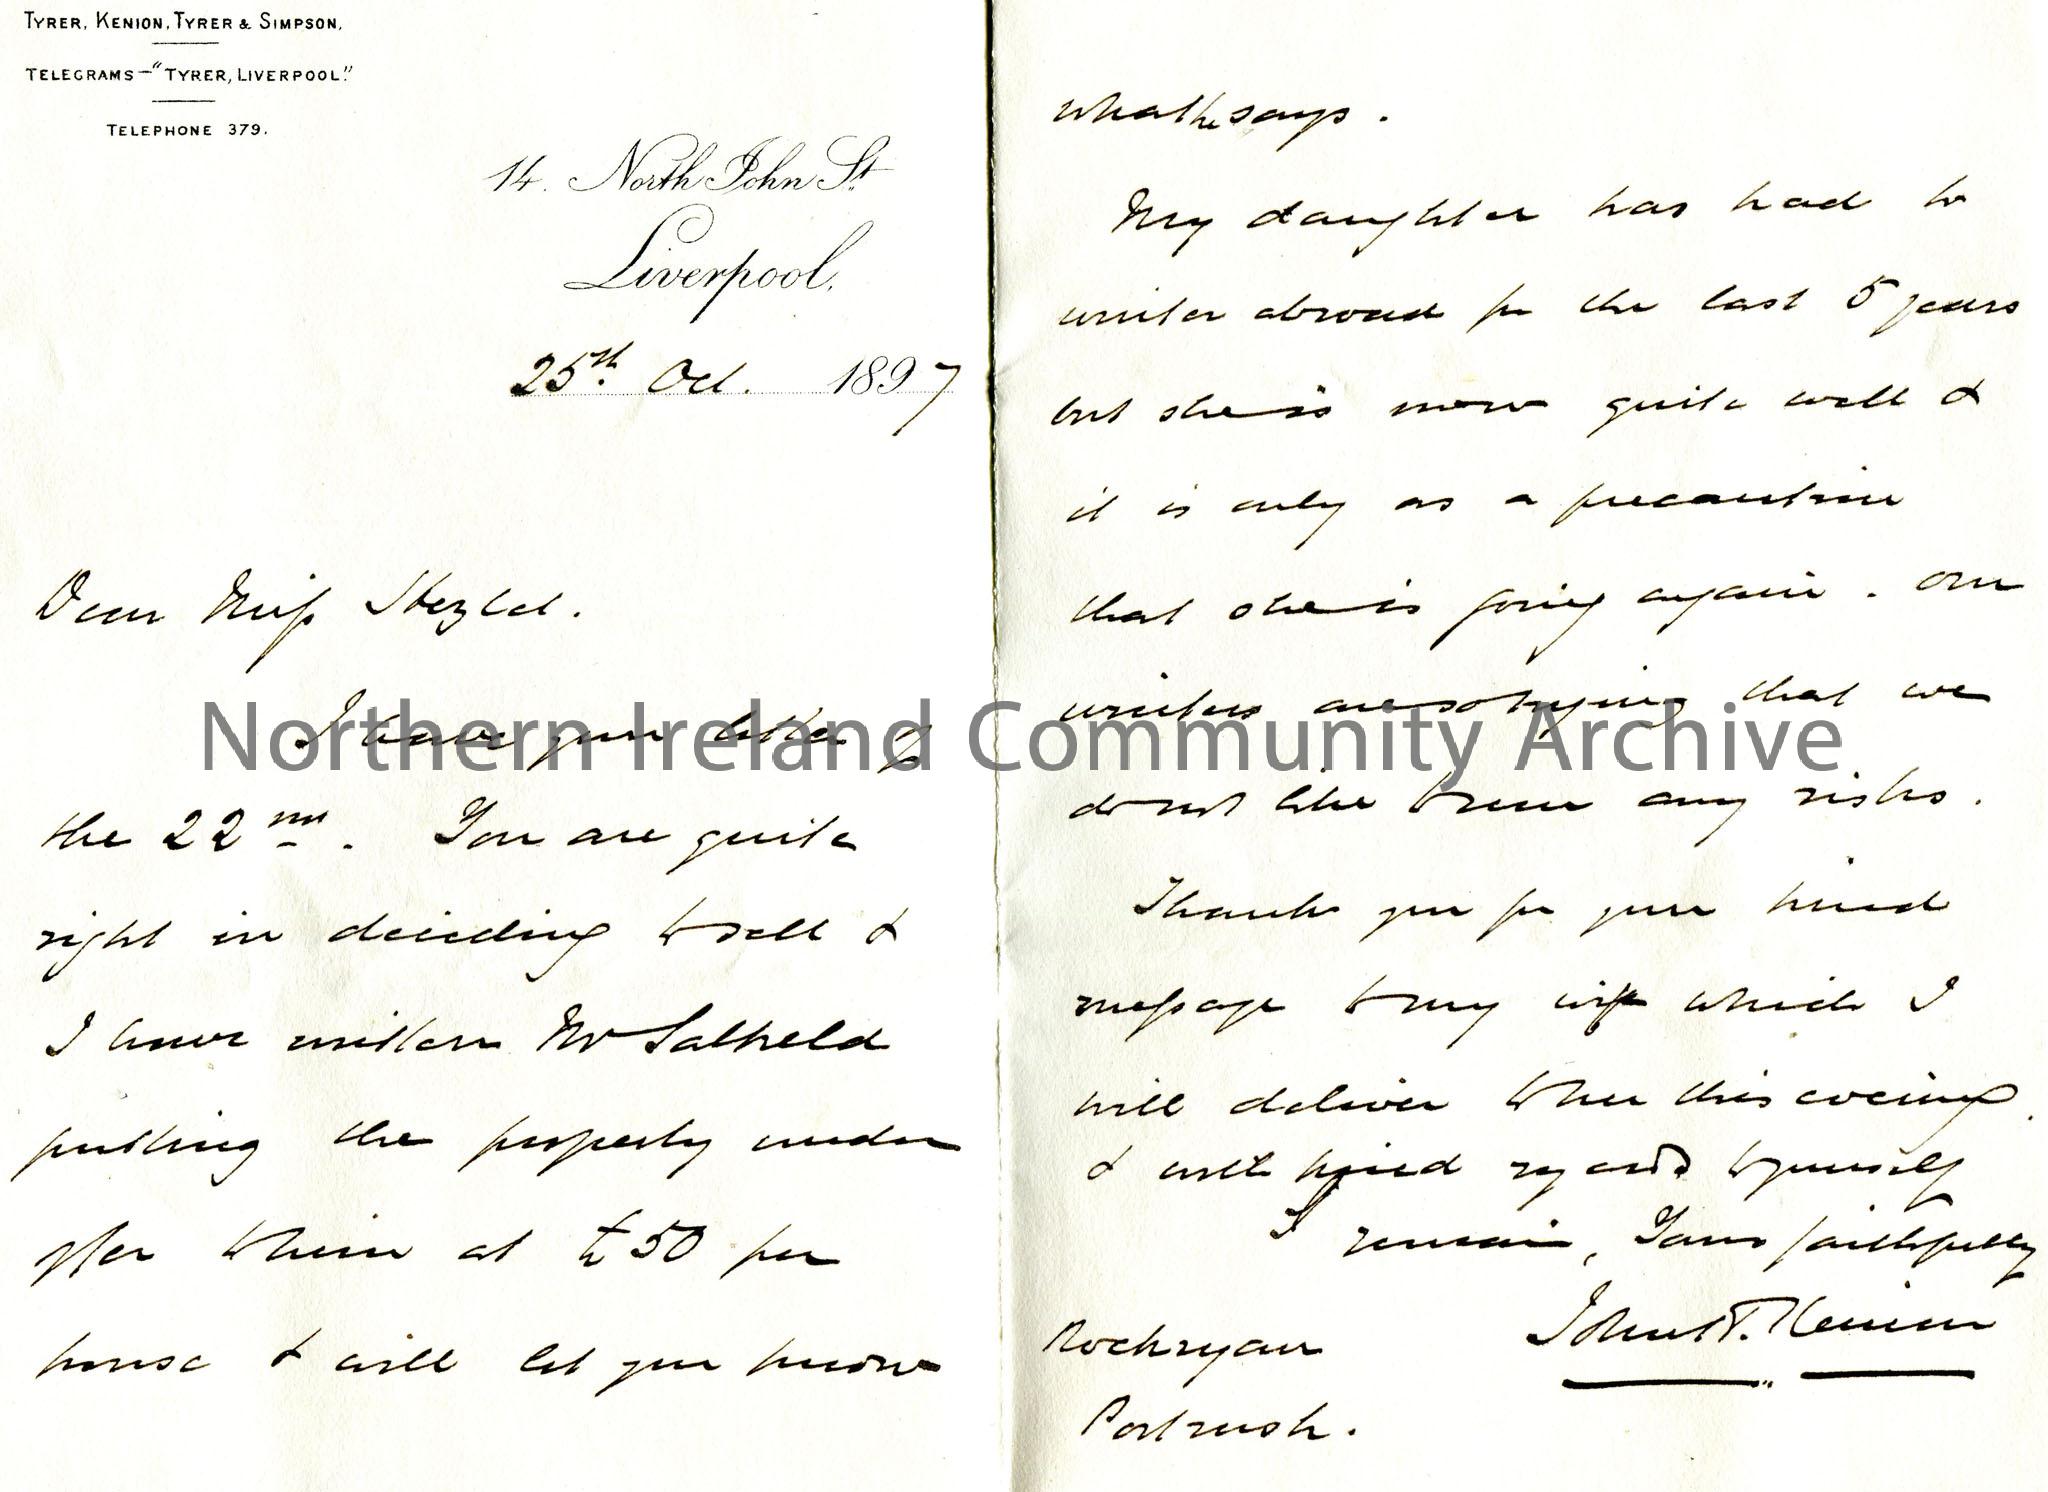 TYRER, KENION, TYRER & SIMPSON.
TELEGRAMS—"TYRER, LIVERPOOL."
TELEPHONE 379.
14. North John St.
Liverpool,
25th. Oct. 1897
Dear Miss Hezlet.
I have your letter of
the 22nd. You are quite
right in deciding to sell &
I have written Mr Salkeld
putting the property under
offer to him at £50 per
house & will let you know
what he says.
My daughter has had to
winter abroad for the last 5 years
but she is now quite well &
it is only as a precaution
that she is going again. Our
winters are so trying that we
do not like to run any risks.
Thank you for your kind
message to my wife which I
will deliver to her this evening
& with kind regards to yourself
I remain, Yours faithfully
John T. Kenion
Rockryan
Portrush.
Northern Ireland Community Archive